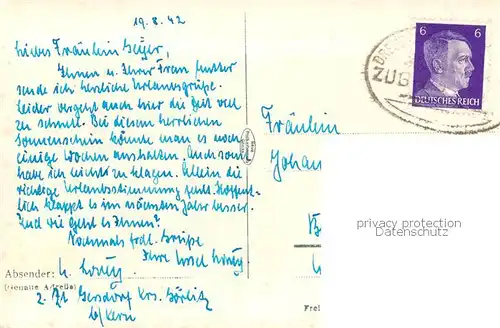 19.8.42
Liebes Fräulein Geyer,
Ihnen u. Ihrer Frau Mutter
sende ich herzliche Urlaubsgrüße.
Leider vergeht auch hier die Zeit viel
zu schnell. Bei diesem herrlichen
Sonnenschein könnte man es noch
einige Wochen aushalten. Auch sonst
habe ich nichts zu klagen. Allein die
richtige Urlaubsstimmung fehlt. Hoffent-
lich klappt es im nächsten Jahr besser.
Und wie geht es Ihnen?
Nochmals frdl. Grüße
Ihre Ursel
Absender:
(Genaue Adresse)
z. Zt. Gersdorf Krs. Görlitz
b/Kern
6 6
DEUTSCHES REICH
ZUG
Fräulein
Johan
privacy protection
Datenschutz
Frei